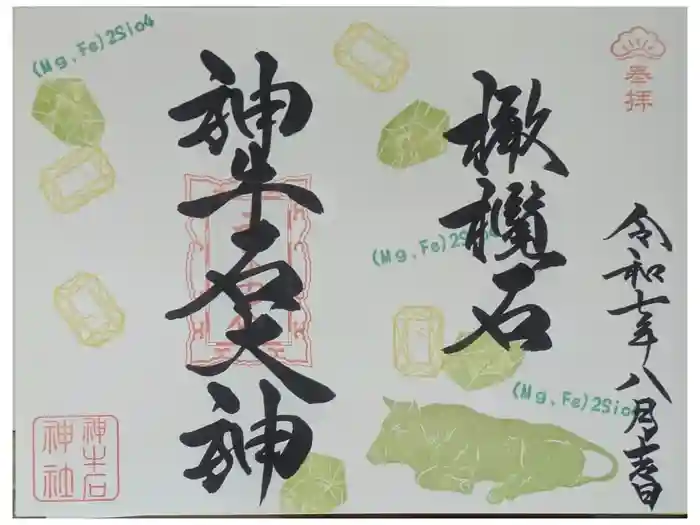 奉拝
令和七年八月吉日
橄欖石
神牛石大神
神牛石
神社
(Mg,Fe)2Sio4
(Mg,Fe)2S
(Mg,Fe)2Sio